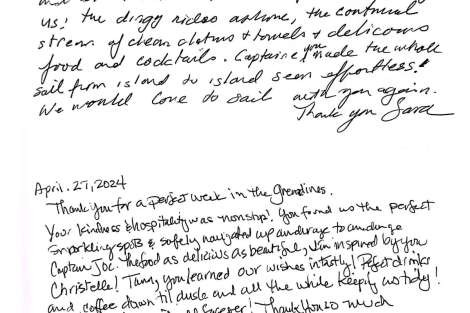 us! the dingy rides ashore, the continual
stream of clean clothes & towels & delicious
food and cocktails. Captaine you made the whole
sail from island to island seem effortless!
We would love to sail with you again.
Thank you Sara
April. 27, 2024
Thank you for a perfect week in the Grenadines.
Your kindness & hospitality was nonstop! You found us the perfect
snorkeling spots & safely navigated up anchorage to anchorage
Captain Joe. The food as delicious as beautiful, I'm inspired by you
Christelle! you learned our wishes instantly! Perfect drinks
and coffee down til dusk and all the while keeping us tidy!
forever! Thank you so much